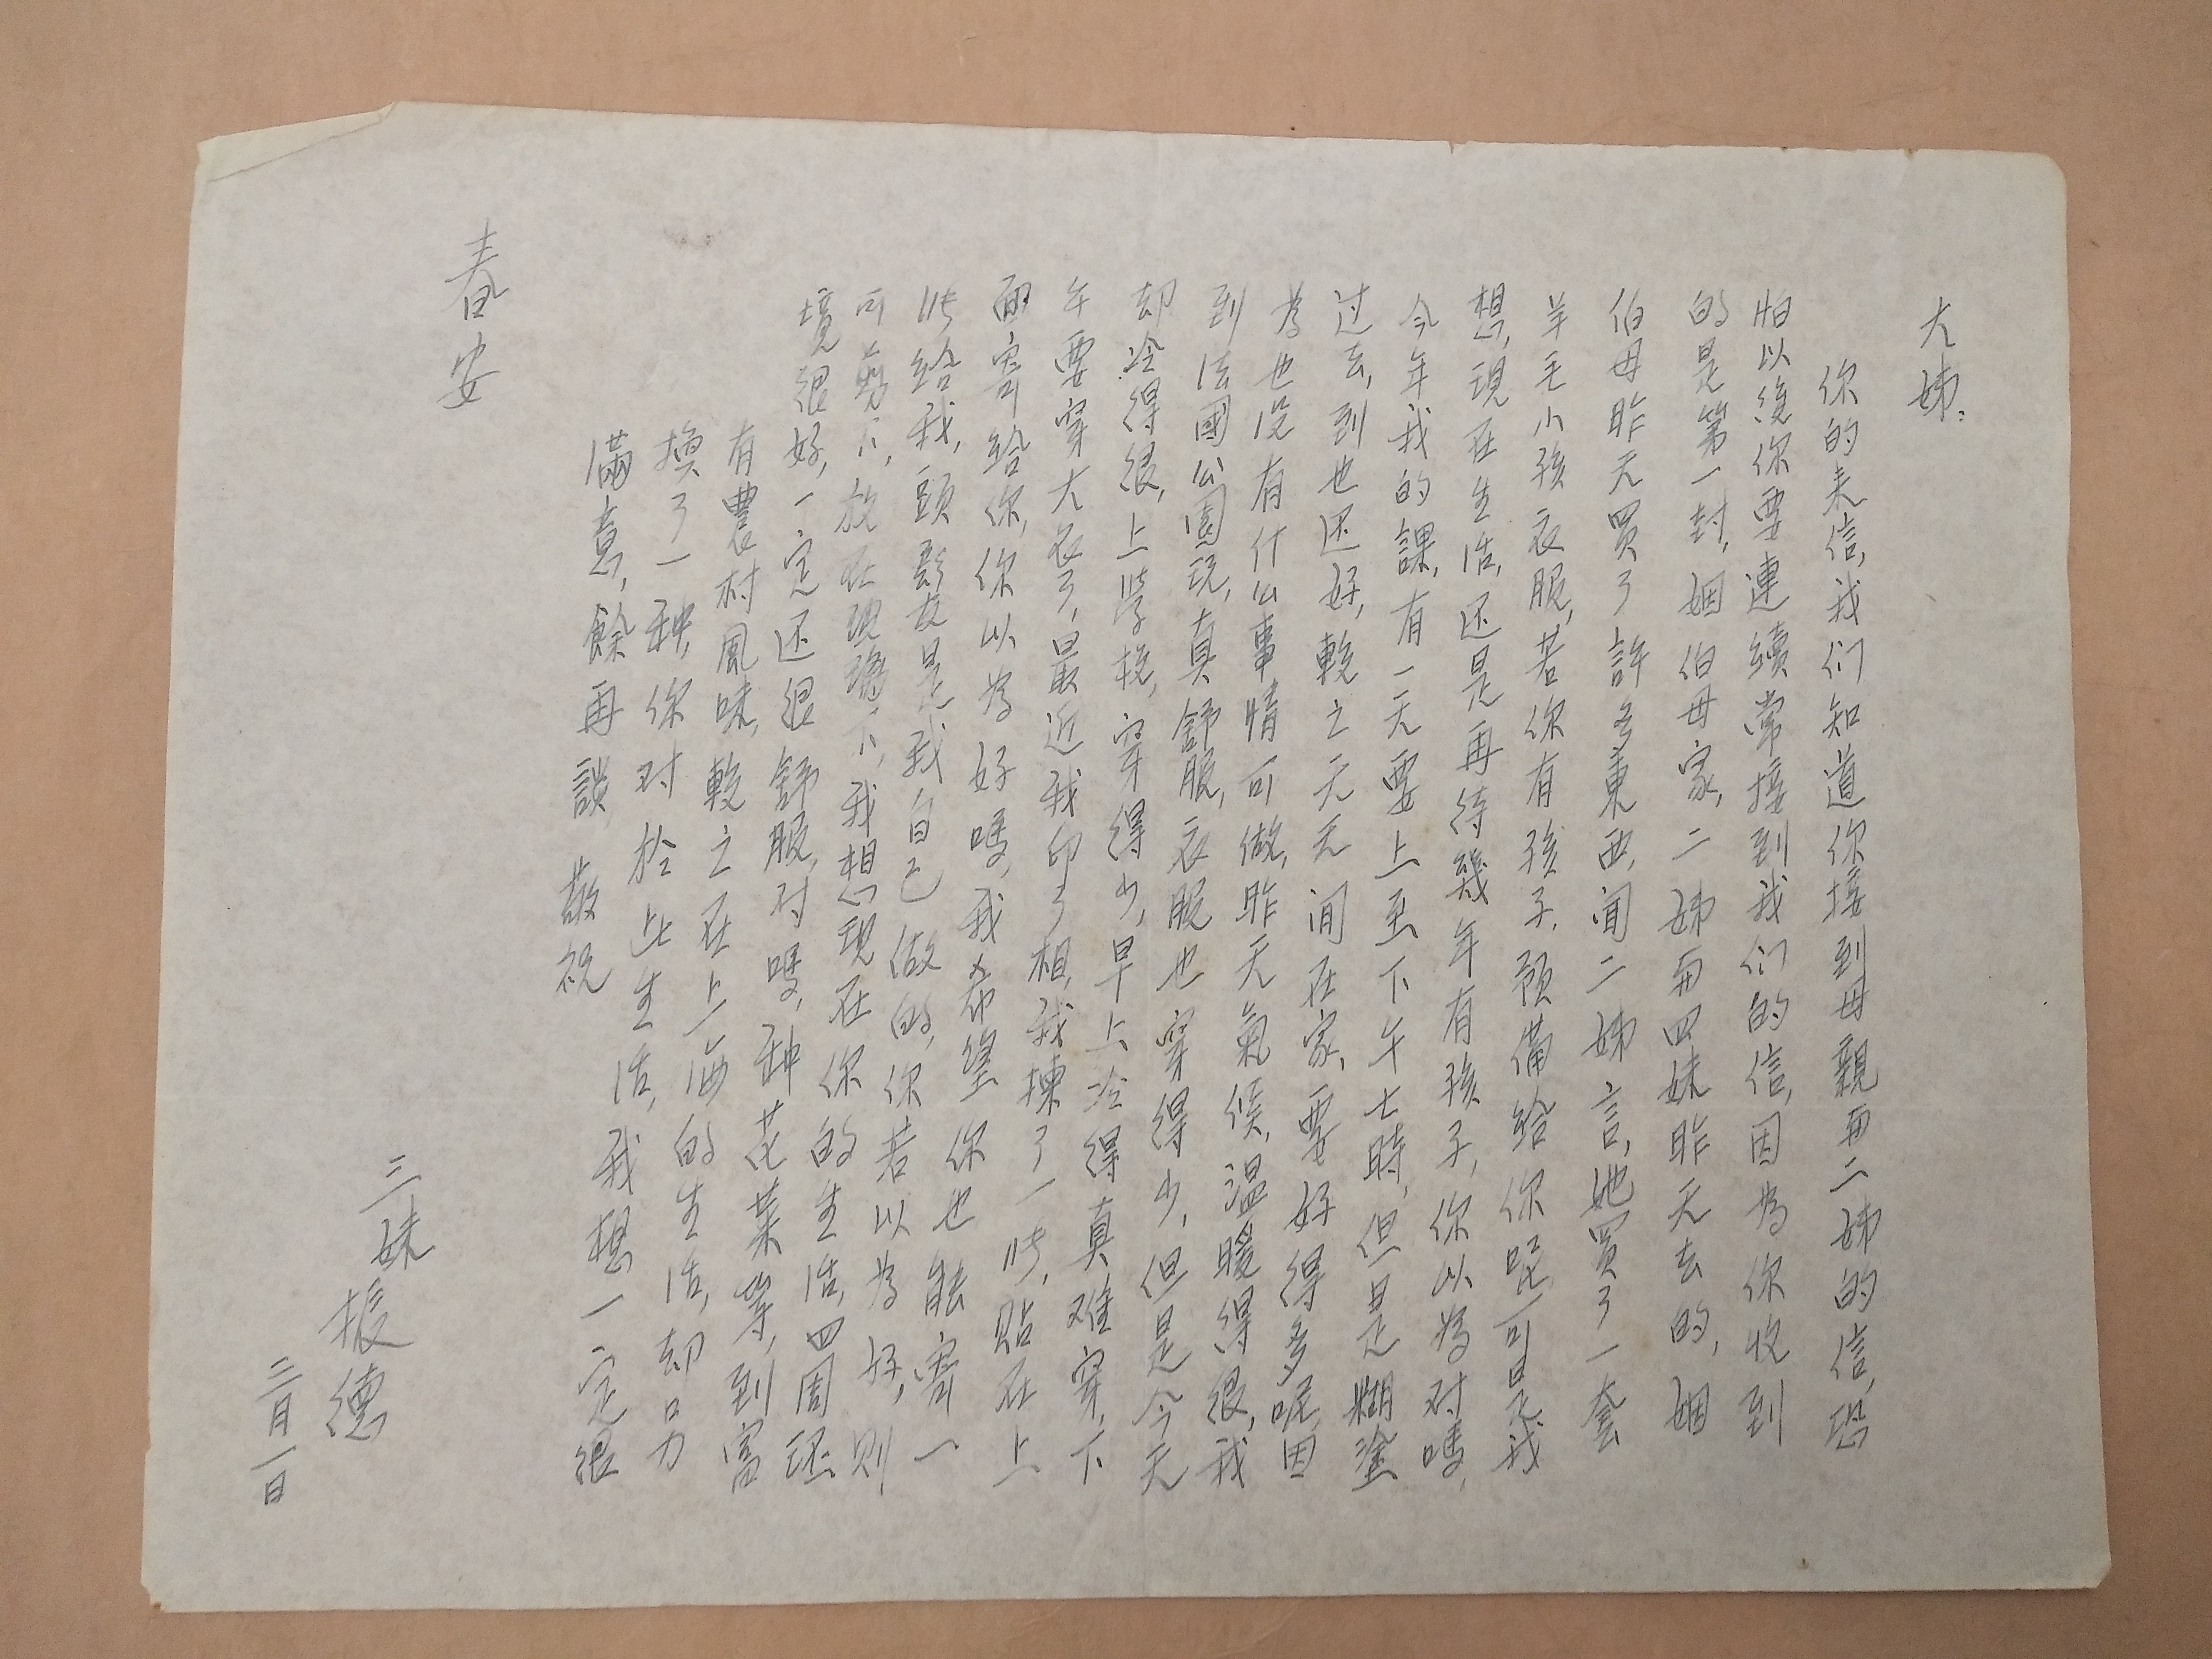 大姊：
你的来信，我们知道你接到母親与二姊的信，恐
怕以後你要連續常接到我们的信，因為你收到
的是第一封，姻伯母家，二姊与四妹昨天去的，姻
伯母昨天買了許多東西，闻二姊言，她買了一套
羊毛小孩衣服，若你有孩子，預備給你呢，可是我
想，現在生活，还是再待幾年有孩子，你以為对嗎，
今年我的課，有一天要上至下午七時，但是糊塗
过去，到也还好，較之天天闲在家，要好得多呢，因
為也没有什么事情可做，昨天氣候，温暖得很，我
到法國公園玩，真舒服，衣服也穿得少，但是今天
却冷得很，上学校，穿得少，早上冷得真难穿，下
午要穿大衣了，最近我印了相，我揀了一张，贴在上
面寄給你，你以為好嗎，我希望你也能寄一
张给我，頭髮是我自己做的，你若以為好，則
可剪下，放在玻璃下，我想現在你的生活，四周环
境很好，一定还很舒服，对嗎，种花菜等，到富
有農村風味，較之在上海的生活，却另
換了一种，你对於此生活，我想一定很
滿意，餘再談 敬祝
春安
三妹 振德
二月一日